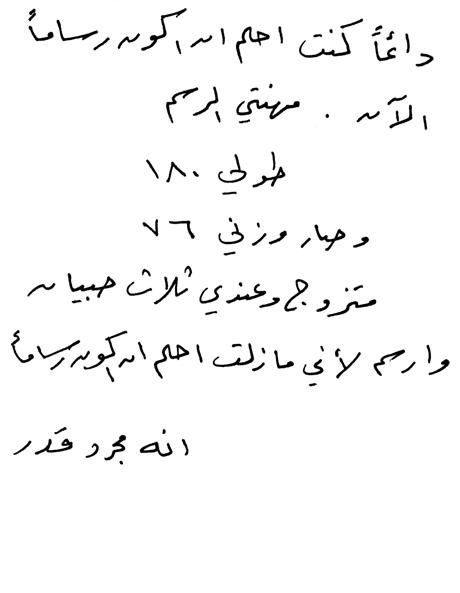 دائماً كنت احلم ان اكون رساماً
الآن . مهنتي الرسم
طولي ١٨٠
وصار وزني ٧٦
متزوج وعندي ثلاث صبيان
وارسم لأني مازلت احلم ان اكون رساماً
انه مجرد قدر